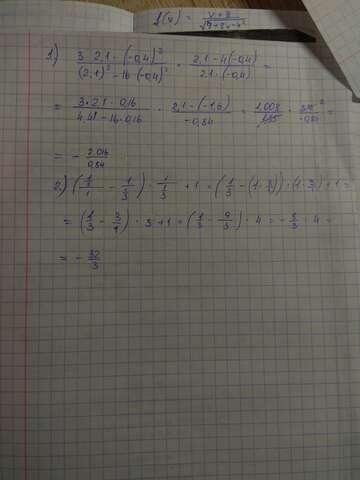 f(x) =
1) 3 · 2,1 · (-0,4)² / (2,1)² - 16 · (-0,4)² · 2,1 - 4(-0,4) / 2,1 · (-0,4) =
= 3 · 2,1 · 0,16 / 4,41 - 16 · 0,16 · 2,1 - (-1,6) / -0,84 = 1,008 / · / -0,84 =
= - 2,016 / 0,84
2) ( / 1 - 1/3) · 1 / 1/3 + 1 = (1/3 - (1 · 3)) · (1 · 3) + 1 =
= (1/3 - 3/1) · 3 + 1 = (1/3 - 9/3) · 4 = - 8/3 · 4 =
= - 32/3